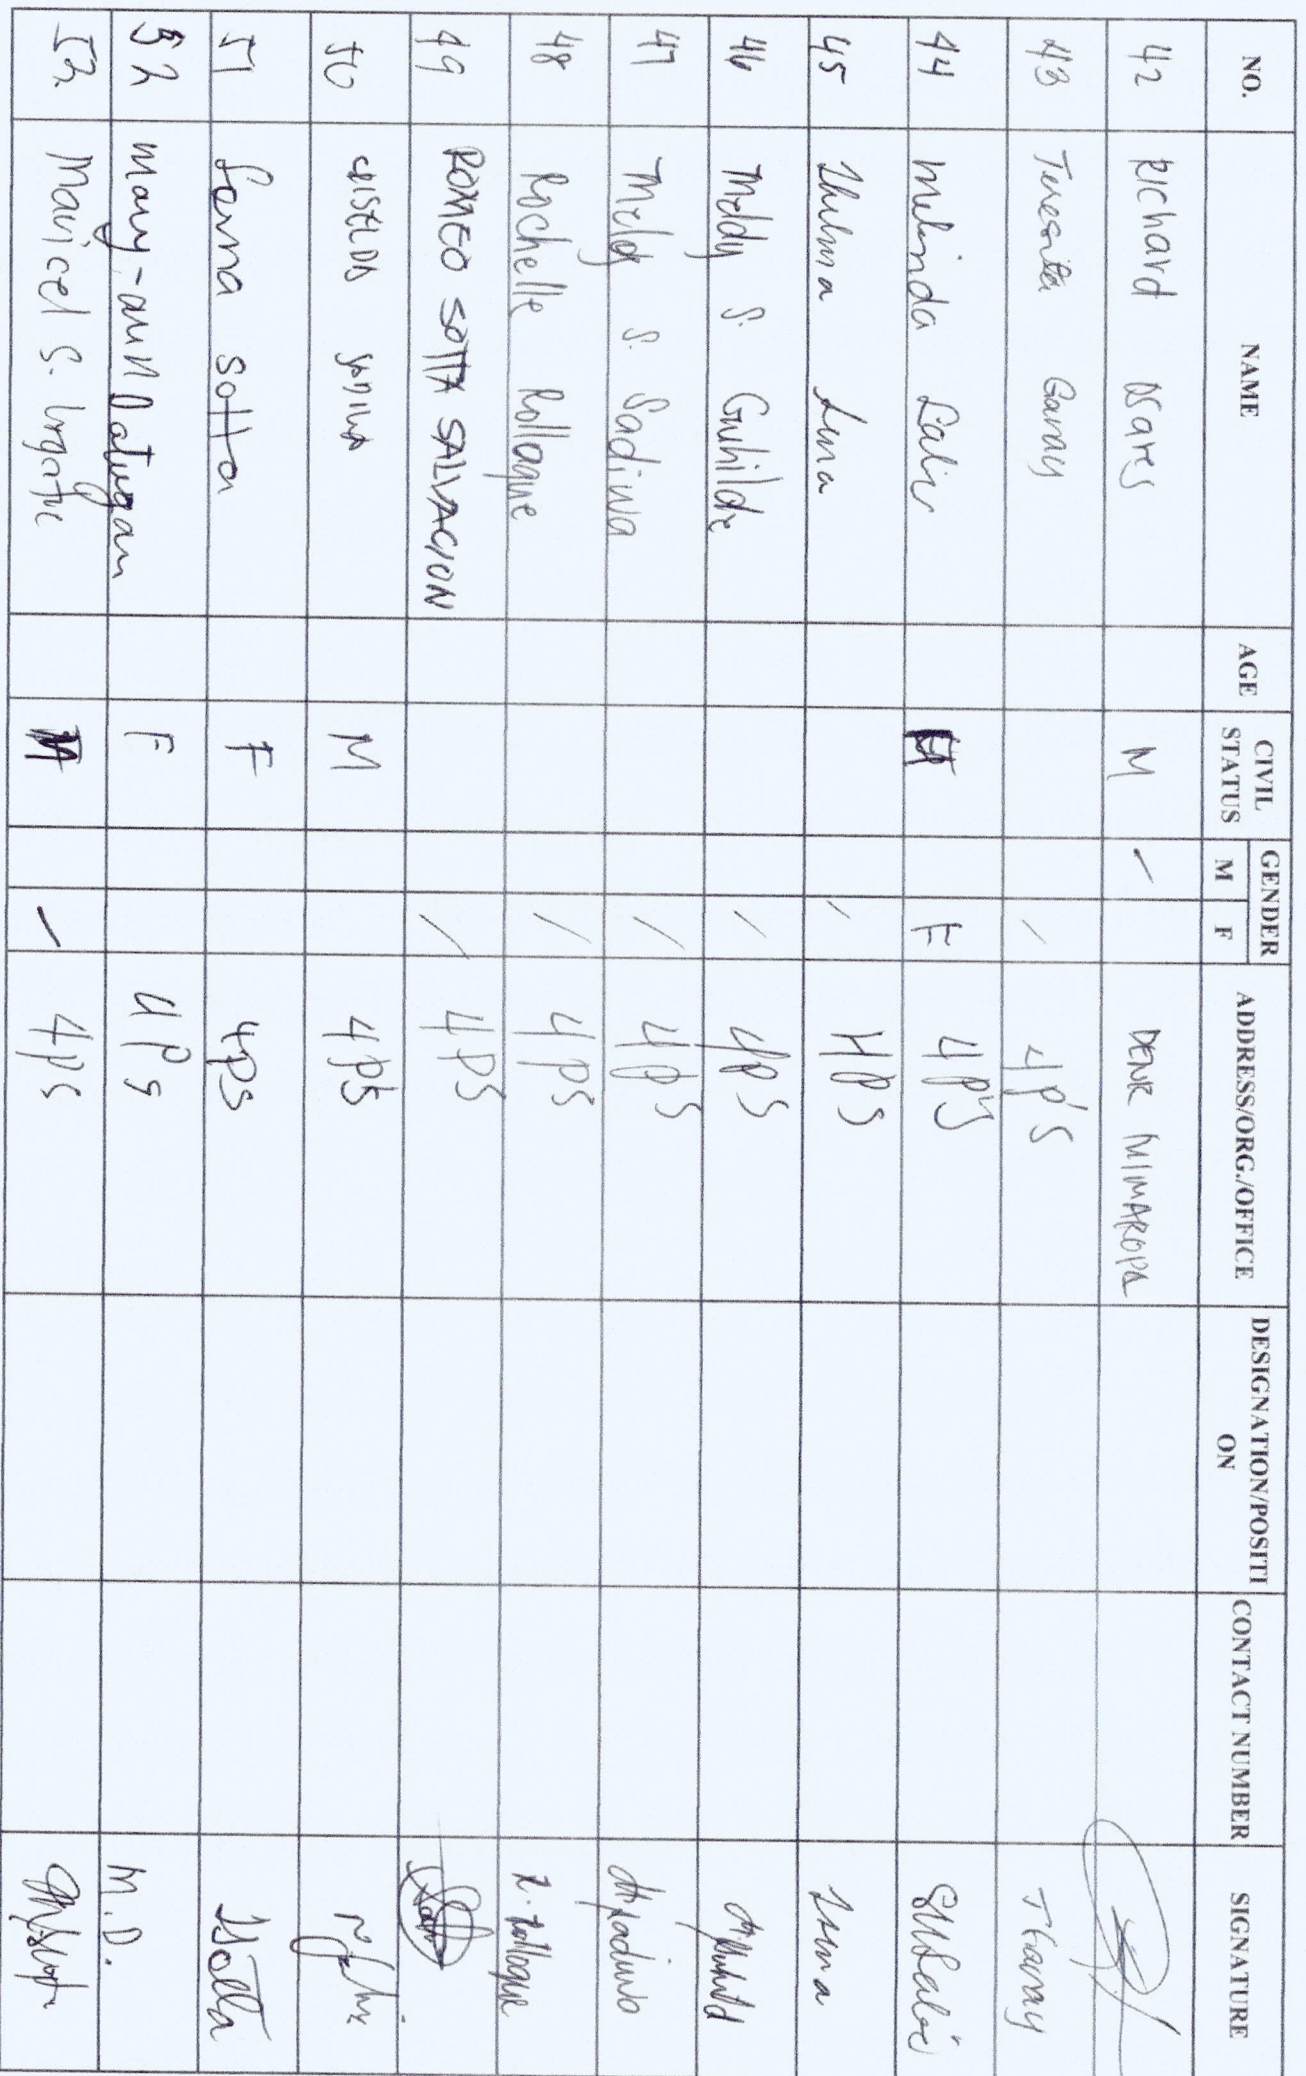 NO. NAME AGE CIVIL STATUS GENDER M F ADDRESS/ORG./OFFICE DESIGNATION/POSITI ON CONTACT NUMBER SIGNATURE
42 Richard M / DENR MIMAROPA
43 Teresita Garay / 4P'S TGaray
44 Melinda F 4P'S
45 Luna / 4PS Luna
46 Meldy S. Guhilde / 4PS
47 Meldy S. Sadiwa / 4PS
48 Rochelle Rollogue / 4PS R. Rollogue
49 ROMEO SOTTA SALVACION / 4PS
50 M 4P'S
51 Sotta F 4PS
52 Mary-ann Datugan F 4Ps M.D.
52 Maricel S. / 4PS